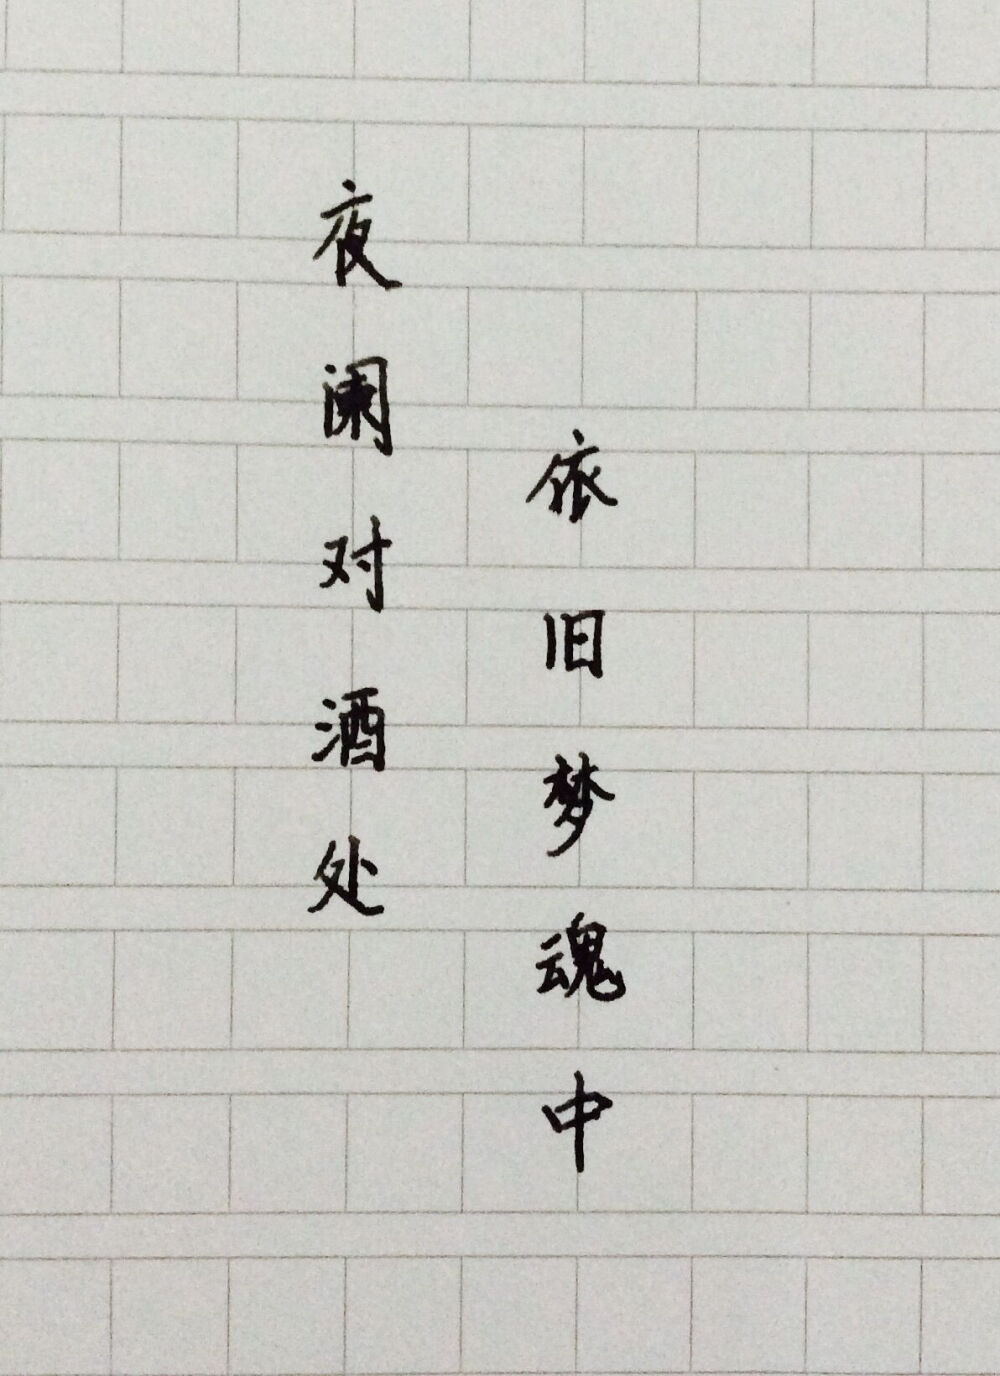 夜阑对酒处
依旧梦魂中